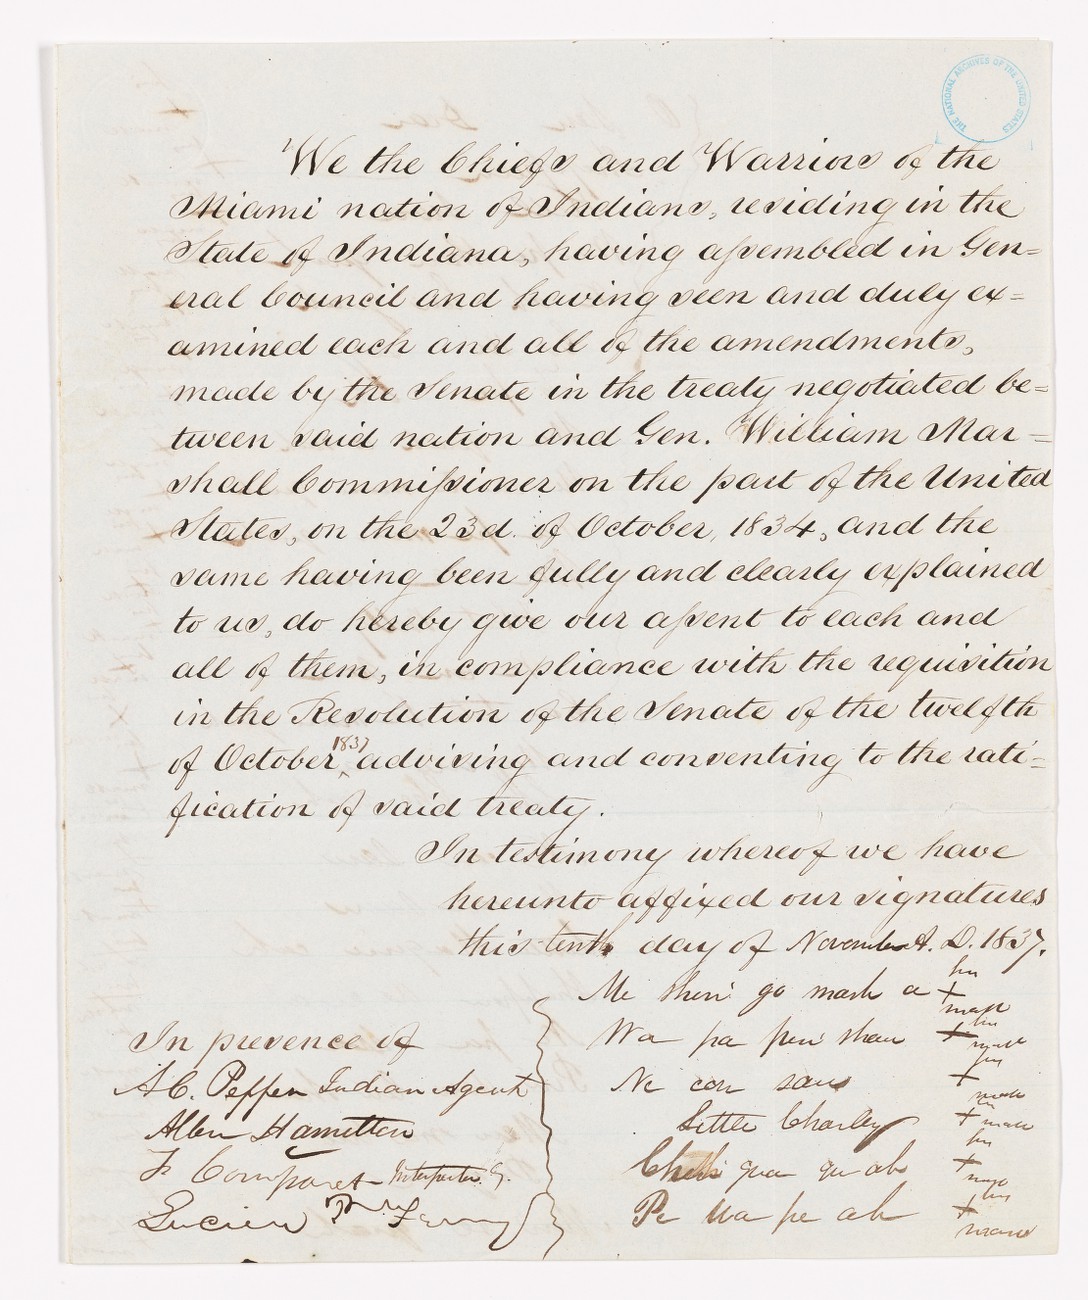 THE NATIONAL ARCHIVES OF THE UNITED STATES
We the Chiefs and Warriors of the
Miami nation of Indians, residing in the
State of Indiana, having assembled in Gen=
eral Council and having seen and duly ex=
amined each and all of the amendments,
made by the Senate in the treaty negotiated be=
tween said nation and Gen. William Mar=
shall Commissioner on the part of the United
States, on the 23d. of October, 1834, and the
same having been fully and clearly explained
to us, do hereby give our assent to each and
all of them, in compliance with the requisition
in the Resolution of the Senate of the twelfth
of October 1837 advising and consenting to the rati=
fication of said treaty.
In testimony whereof we have
hereunto affixed our signatures
this tenth day of November A. D. 1837.
Me shin go mash a his + mark
Wa pa pin shaw his + mark
Ne con saw his + mark
Little Charley his + mark
Chin qua qu ah his + mark
Po Wa pe ah his + mark
In presence of
A C. Pepper Indian Agent
Allen Hamilton
F Comparet Interpreter
Lucien P. Ferry